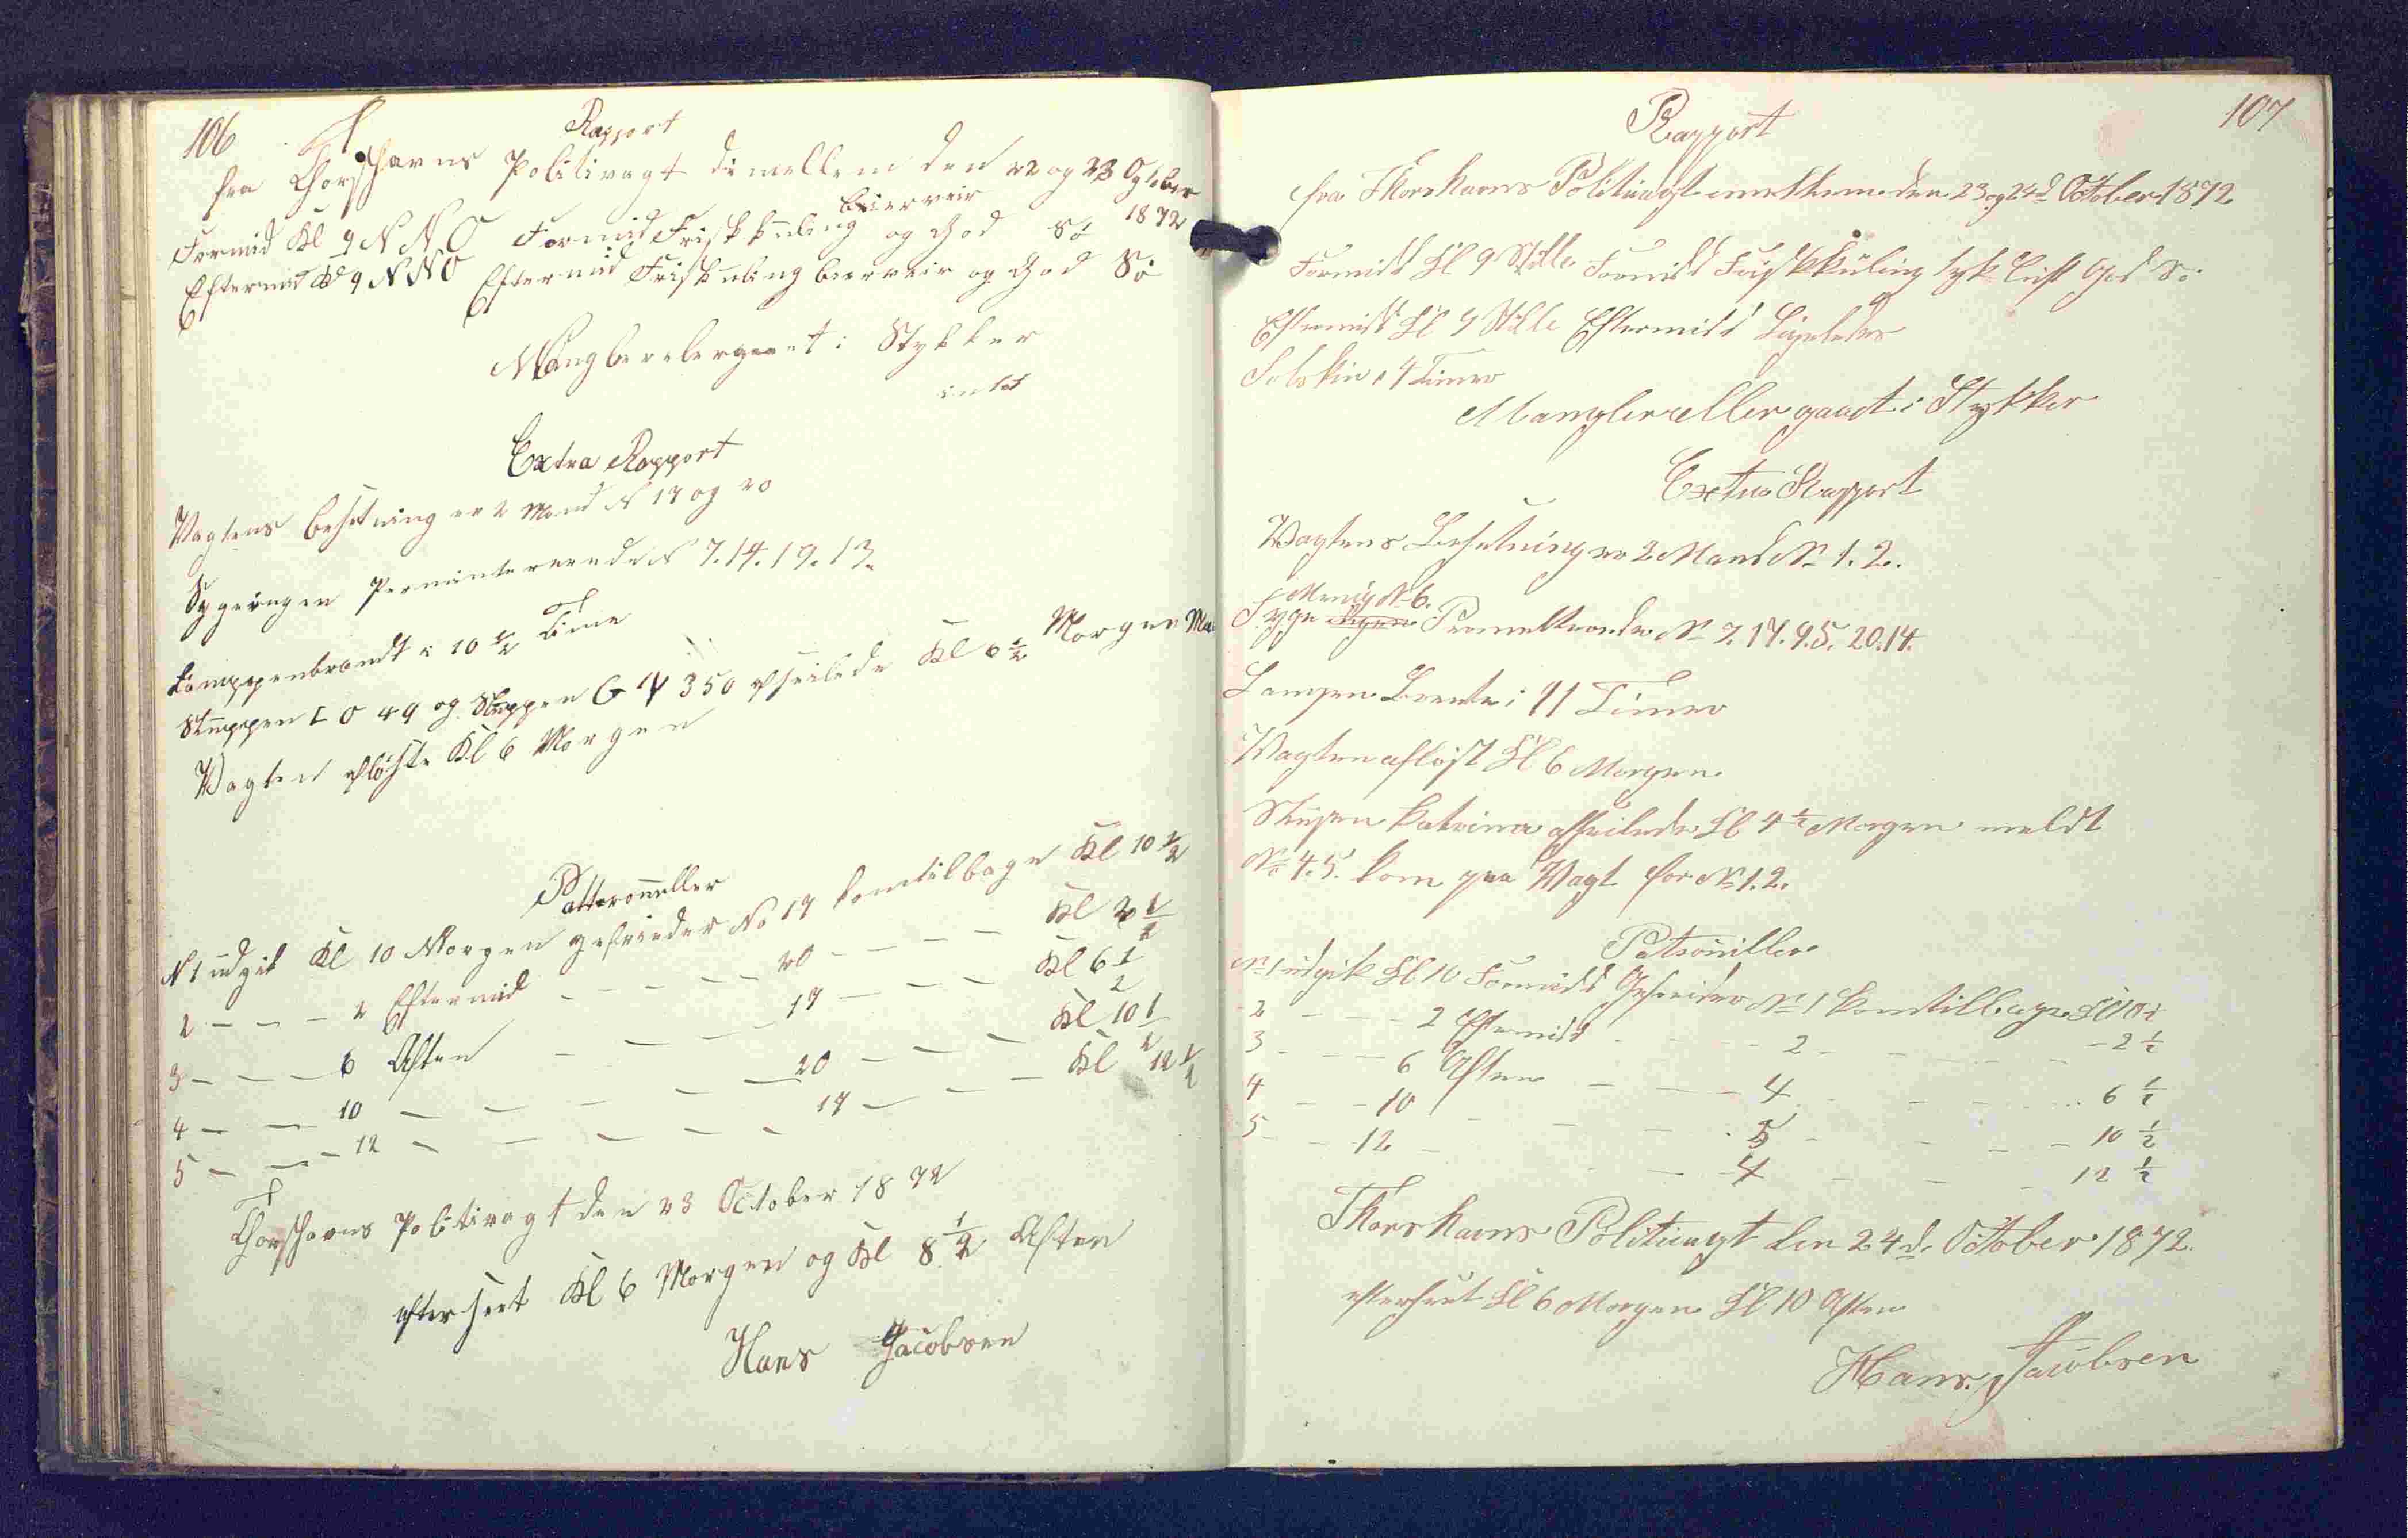 106
Rapport
fra Thorshavns Politivagt Imellem den 22 og 23 October
1872
Formid Kl 9 NNO Formid Friskkuling og God Sö
beierveir
Eftermid Kl 9 NNO Eftermid Friskuling beierveir og God Sö
Manglereler gaaet i Stykker
intet
Extra Rapport
Vagtens besetning er 2 Mand N 17 og 20
Syge ingen Permiterende N 7. 14. 19. 13.
Lamppen brandt i 10 1/2 Time
Sluppen LO 49 og Sluppen GV 350 afseilede Kl 6 1/2 Morgen
Vagten aflöste Kl 6 Morgen
Patterouller
N 1 udgik Kl 10 Morgen gefreider No 17 kom tilbage Kl 10 1/2
2 — — — 2 Eftermid — — — — 20 — — — — Kl 2 1/2
3 — — — 6 Aften — — — — 17 — — — Kl 6 1/2
4 — — 10 — — — — — 20 — — — Kl 10 1/2
5 — — — 12 — — — — — 17 — — — Kl 12 1/2
Thorshavns Politivagt den 23 October 1872
efterseet Kl 6 Morgen og Kl 8 1/2 Aften
Hans Jacobsen
107
Rapport
fra Thorshavns Politivagt imellem den 23 og 24d October 1872
Formidd Kl 9 Stille Formidd Friskkuling tyk Luft God Sö
Eftermidd Kl 9 Stille Eftermidd Ligeledes
Solskin i 4 Timer
Mangler eller gaaet i Stykker
Extra Rapport
Vagtens Besetning er 2 Mand No 1. 2.
Menig N 6.
Syge Ingen Permitterende No 7. 17. 9. 5. 20. 14.
Lampen Brente i 11 Timer
Vagten aflöst Kl 6 Morgen
Slupen Katrina afseilede Kl 4 1/2 Morgen meldt
No 4. 5. kom paa Vagt for No 1. 2.
Patrouiller
No 1 udgik Kl 10 Formidd Gefreider No 1 kom tilbage Kl 10 1/2
2 — — — 2 Eftermidd — — — 2 — — — — 2 1/2
3 — — — 6 Aften — — — 4 — — — 6 1/2
4 — — 10 — — — 5 — — — 10 1/2
5 — — 12 — — — 4 — — — 12 1/2
Thorshavns Politivagt den 24d. October 1872.
efterseet Kl 6 Morgen Kl 10 Aften
Hans. Jacobsen